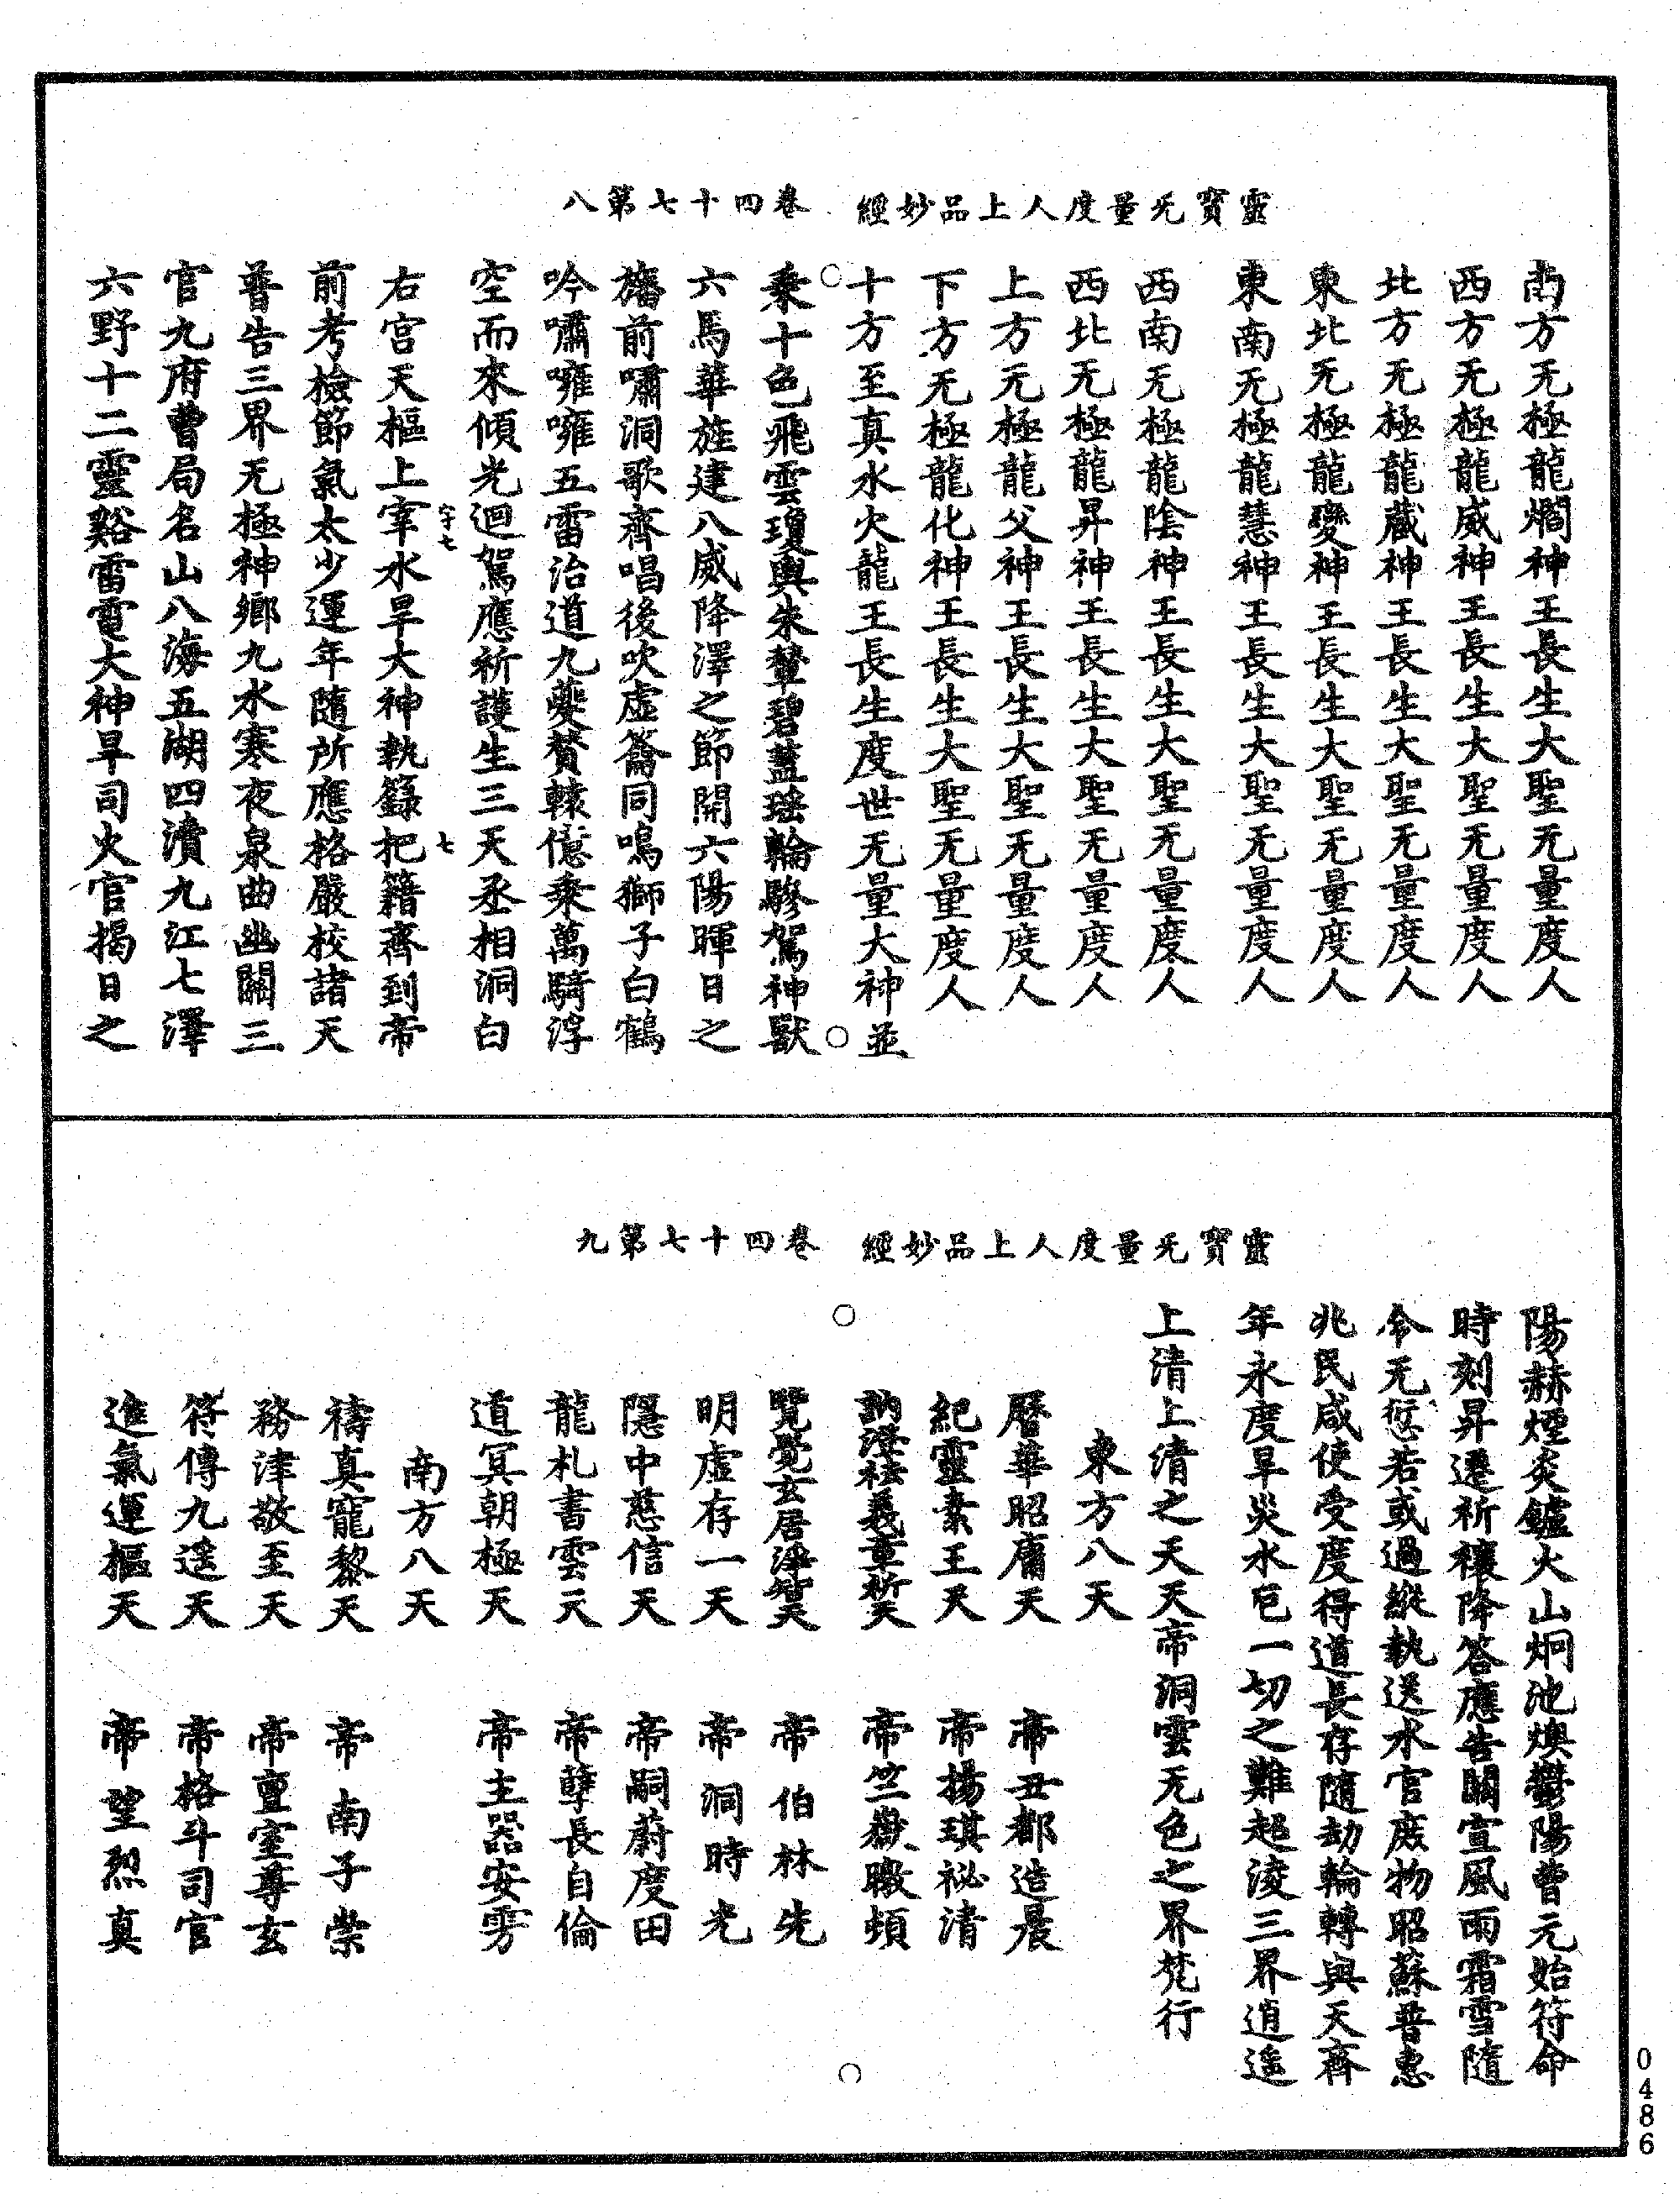 靈寶无量度人上品妙經　卷四十七第八
南方无極龍爓神王長生大聖无量度人
西方无極龍威神王長生大聖无量度人
北方无極龍藏神王長生大聖无量度人
東北无極龍變神王長生大聖无量度人
東南无極龍慧神王長生大聖无量度人
西南无極龍陰神王長生大聖无量度人
西北无極龍昇神王長生大聖无量度人
上方无極龍父神王長生大聖无量度人
下方无極龍化神王長生大聖无量度人
十方至真水火龍王長生度世无量大神並
乗十色飛雲瓊輿朱輦碧蓋瑶輪驂駕神獸
六馬華旌建八威降澤之節開六陽暉日之
旛前嘯洞歌齊唱後吹虛籥同鳴獅子白鶴
吟嘯嗈嗈五雷治道九夔賛轅億乘萬騎浮
空而來傾光迴駕應祈護生三天丞相洞白
右宫天樞上宰水旱大神執籙把籍齊到帝
前考檢節氣太少運年隨所應格嚴校諸天
普告三界无極神鄉九水寒夜泉曲幽關三
官九府曹局名山八海五湖四瀆九江七澤
六野十二靈谿雷電大神旱司火官揭日之
靈寶无量度人上品妙經　卷四十七第九
陽赫煙炎鑪火山炯池燠鬱陽曹元始符命
時刻昇遷祈禳降答應告關宣風雨霜雪隨
令无愆若或過縱執送水官庻物昭蘇普惠
兆民咸使受度得道長存隨劫輪轉與天齊
年永度旱災水厄一切之難超淩三界逍遥
上清上清之天天帝洞雲无色之界梵行
東方八天
曆華昭庸天　帝丑都造晨
紀靈素王天　帝揚琪祕清
義章天　帝竺嶽暾頻
覽覺玄居淨天　帝伯林先
明虛存一天　帝洞時光
隱中慈信天　帝嗣蔚度田
龍札書雲天　帝孽長自倫
道冥朝極天　帝主器安雱
南方八天
禱真寵黎天　帝南子崇
務津敬至天　帝亶室尊玄
符傳九遥天　帝格斗司官
進氣運樞天　帝望烈真
0486